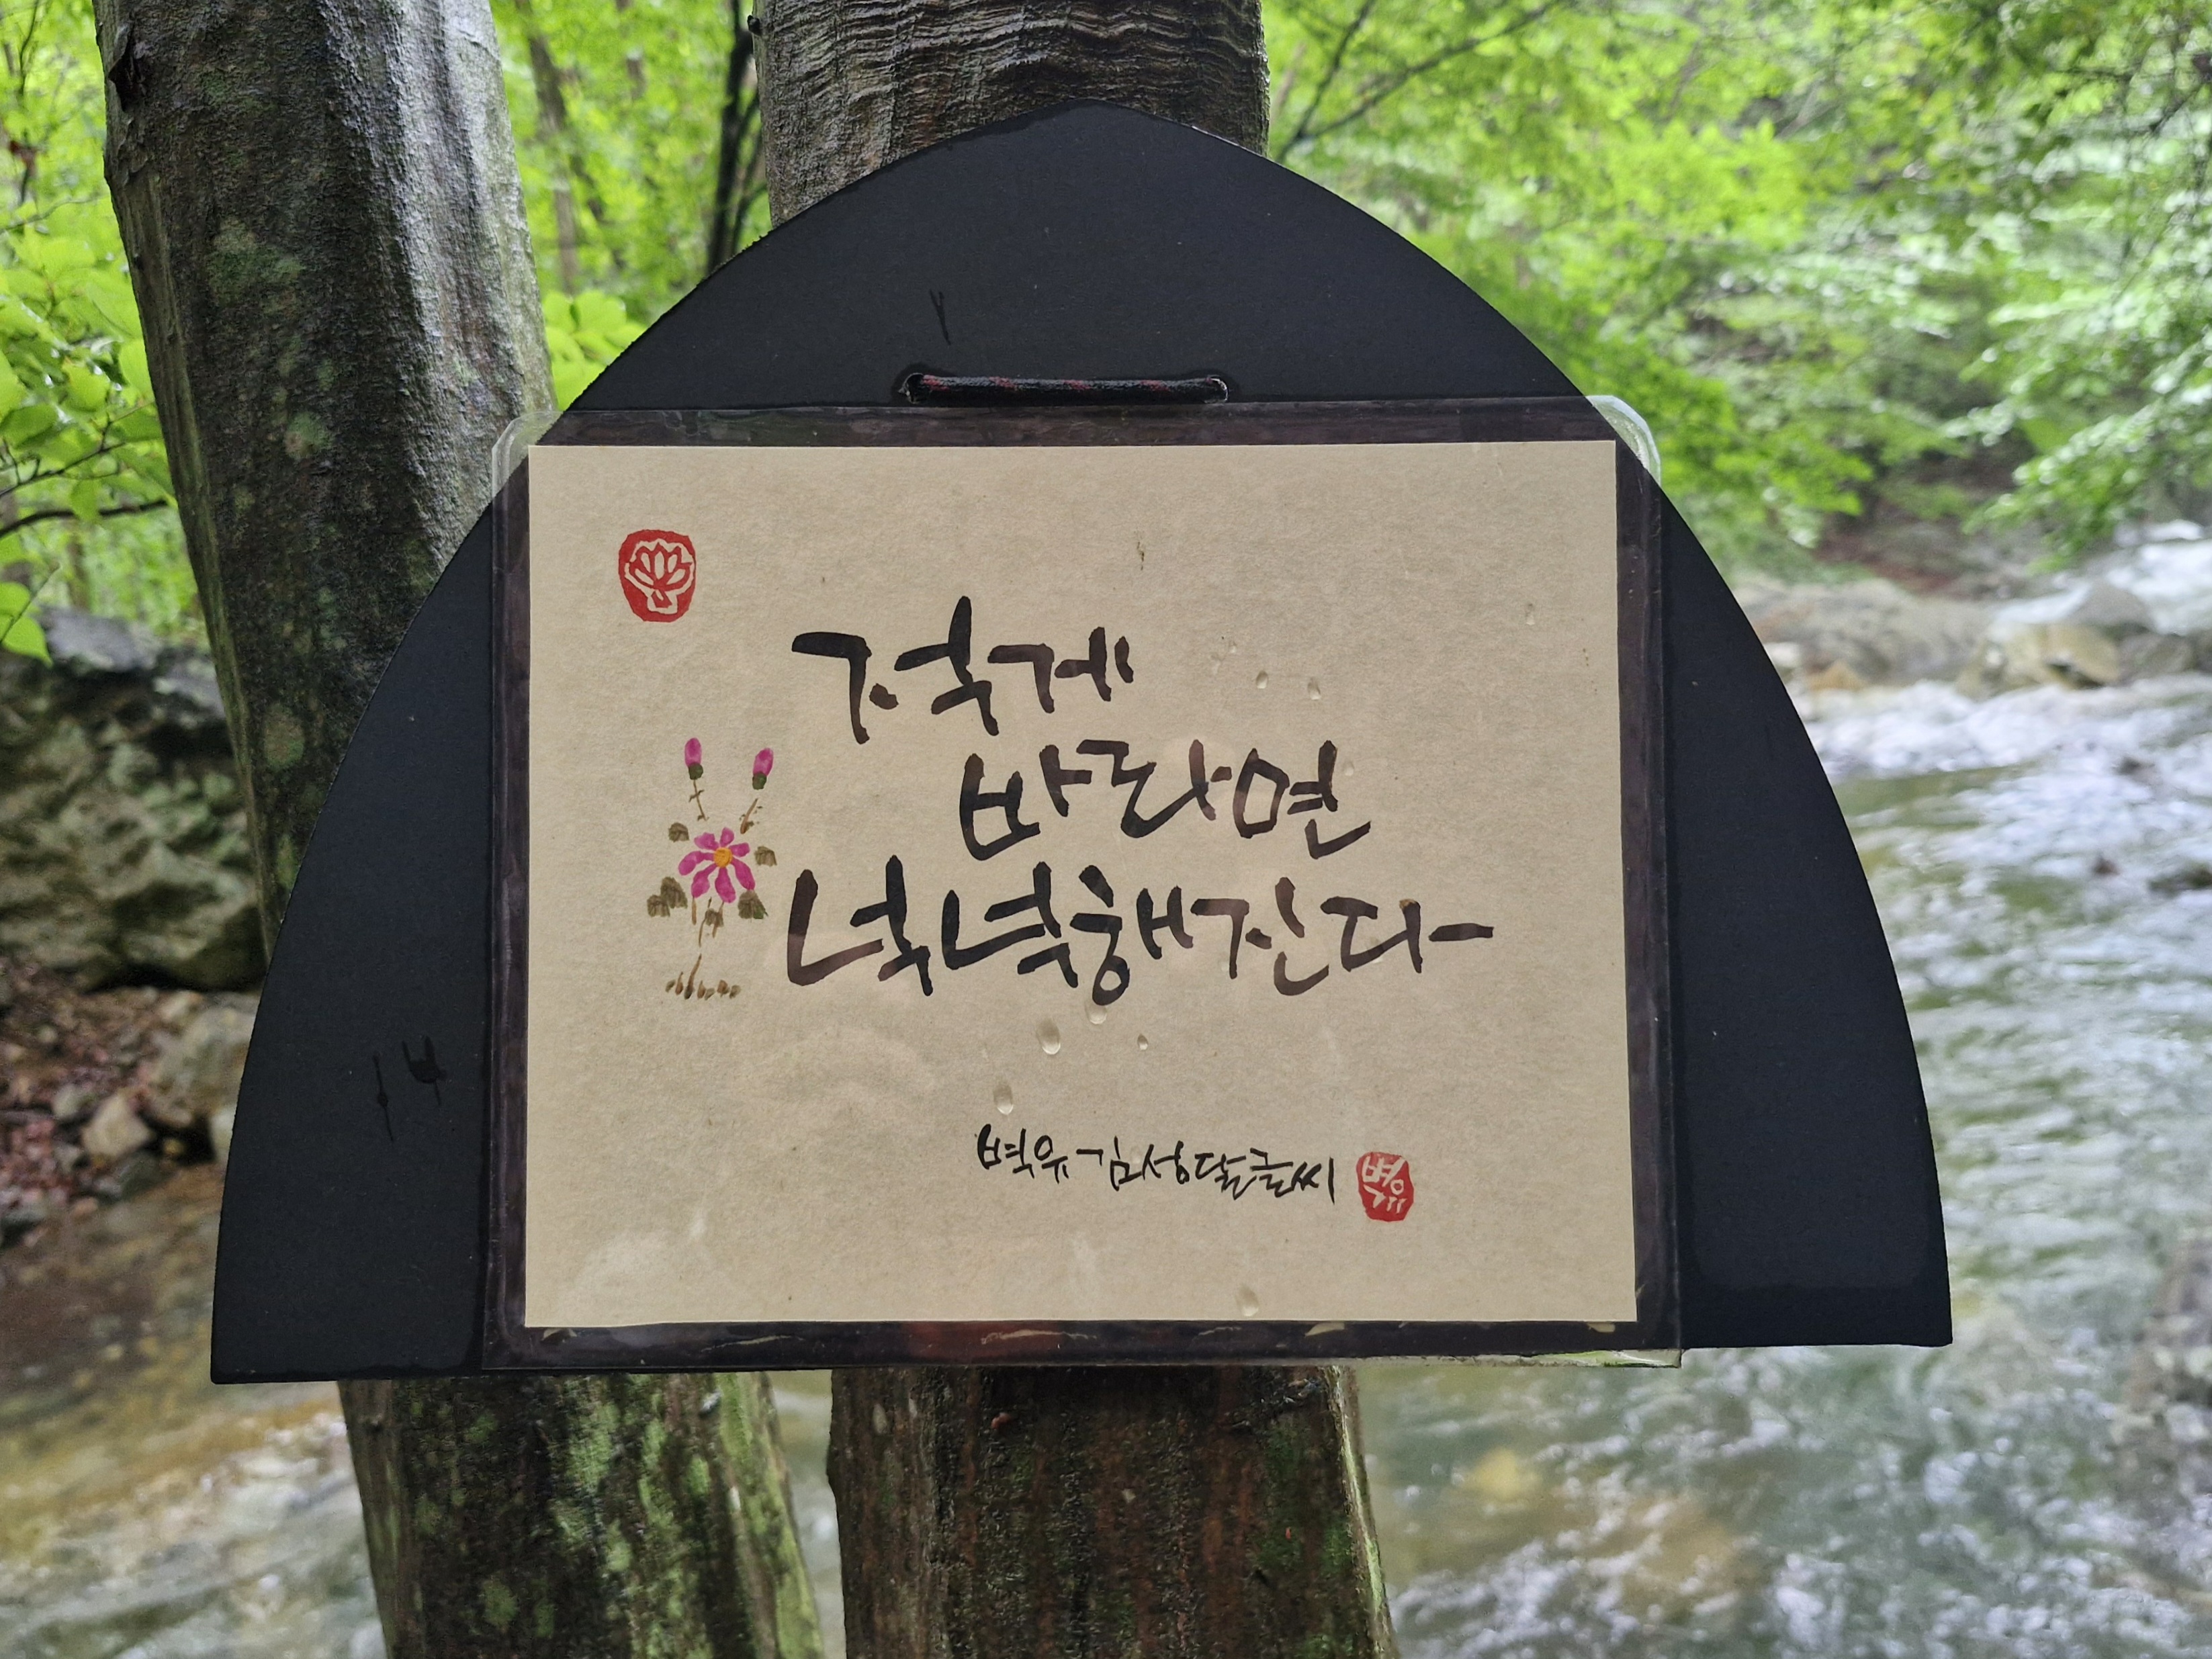 적게
바라면
넉넉해진다
벽유 김성달 글씨
벽유
14